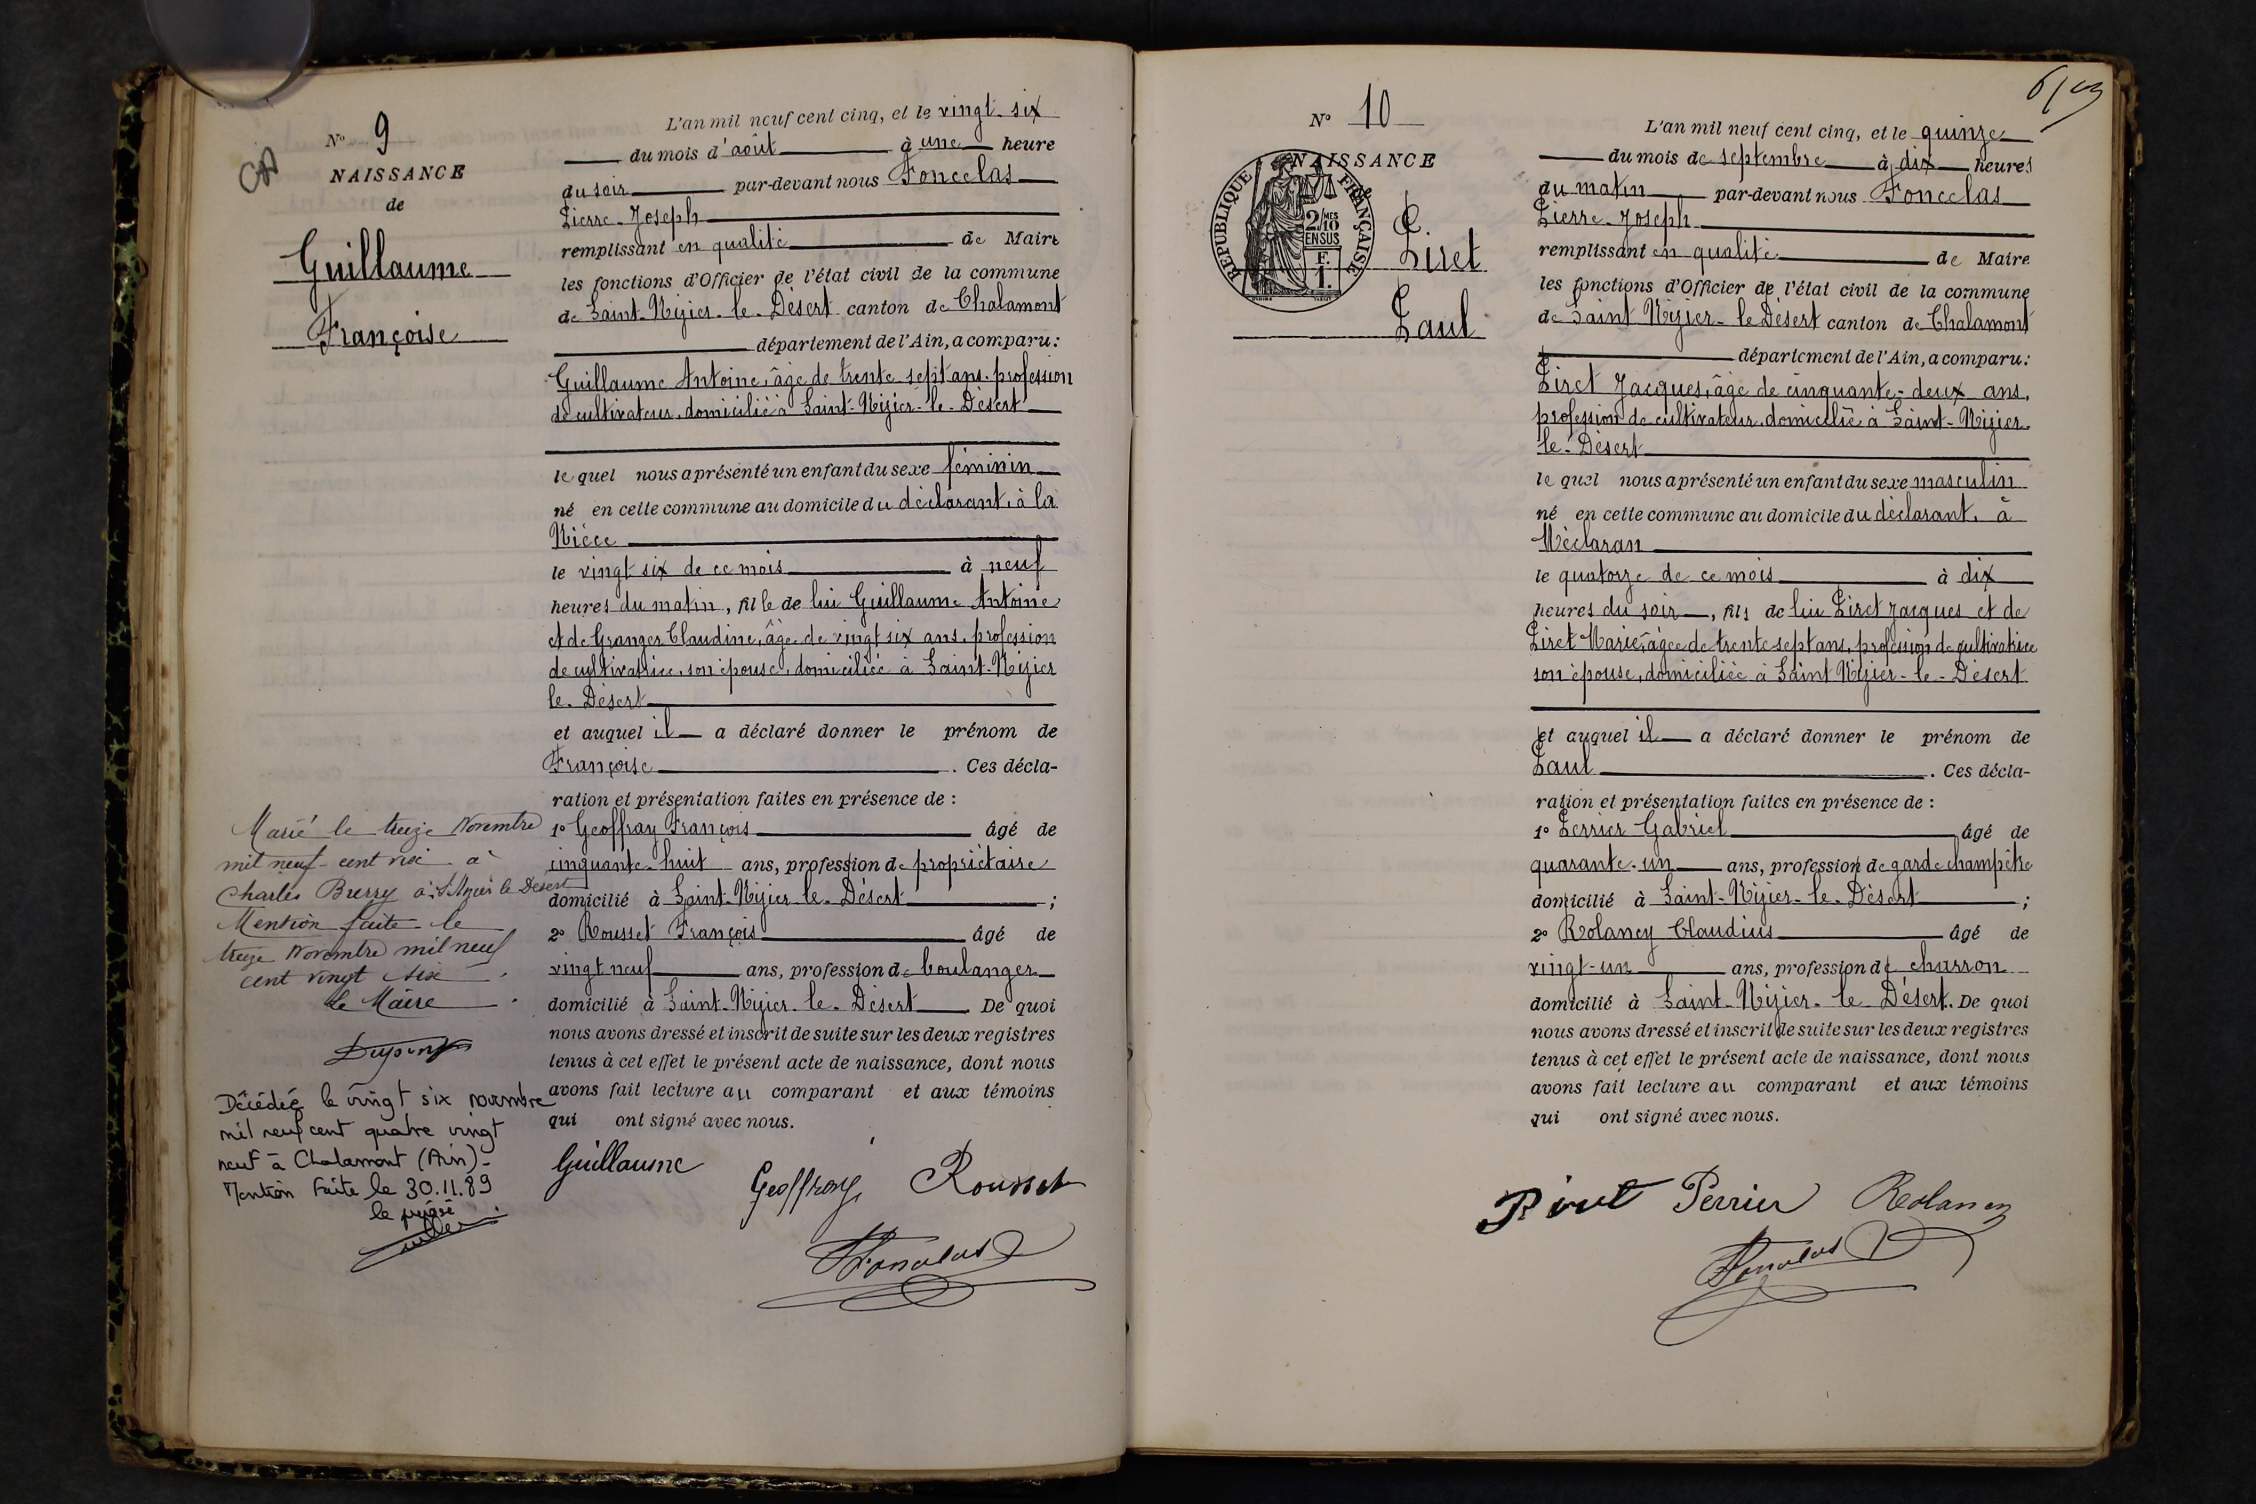 N° 9
NAISSANCE
de
Guillaume
Françoise
L'an mil neuf cent cinq, et le vingt-six
du mois d'août à une heure
du soir par-devant nous Foncelas
Pierre-Joseph
remplissant en qualité de Maire
les fonctions d'Officier de l'état civil de la commune
de Saint-Nizier-le-Désert canton de Chalamont
département de l'Ain, a comparu:
Guillaume Antoine, âgé de trente sept ans, profession
de cultivateur, domicilié à Saint-Nizier-le-Désert
le quel nous a présenté un enfant du sexe féminin
né en cette commune au domicile du déclarant, à la
Nièce
le vingt six de ce mois à neuf
heures du matin, fille de lui Guillaume Antoine
et de Granger Claudine, âgée de vingt six ans, profession
de cultivatrice, son épouse, domiciliée à Saint-Nizier
le-Désert
et auquel il a déclaré donner le prénom de
Françoise. Ces décla-
ration et présentation faites en présence de :
1° Geoffray François âgé de
cinquante-huit ans, profession de propriétaire
domicilié à Saint-Nizier-le-Désert ;
2° Rousset François âgé de
vingt neuf ans, profession de boulanger
domicilié à Saint-Nizier-le-Désert De quoi
nous avons dressé et inscrit de suite sur les deux registres
tenus à cet effet le présent acte de naissance, dont nous
avons fait lecture au comparant et aux témoins
qui ont signé avec nous.
Guillaume Geoffray Rousset
Foncelas
Marié le treize Novembre
mil neuf cent à
Charles à St Nizier le Désert
Mention faite le
treize Novembre mil neuf
cent vingt six
le Maire
Décédée le vingt six novembre
mil neuf cent quatre vingt
neuf à Chalamont (Ain)-
Mention faite le 30.11.89
le
N° 10
NAISSANCE
RÉPUBLIQUE FRANÇAISE
2/10 MES
EN SUS
F.
1.
Piret
Paul
L'an mil neuf cent cinq, et le quinze
du mois de septembre à dix heures
du matin par-devant nous Foncelas
Pierre-Joseph
remplissant en qualité de Maire
les fonctions d'Officier de l'état civil de la commune
de Saint Nizier-le-Désert canton de Chalamont
département de l'Ain, a comparu:
Piret Jacques, âgé de cinquante-deux ans,
profession de cultivateur, domicilié à Saint-Nizier
le-Désert
le quel nous a présenté un enfant du sexe masculin
né en cette commune au domicile du déclarant, à
Méclaran
le quatorze de ce mois à dix
heures du soir, fils de lui Piret Jacques et de
Piret Marie, âgée de trente sept ans, profession de cultivatrice
son épouse, domiciliée à Saint Nizier-le-Désert
et auquel il a déclaré donner le prénom de
Paul. Ces décla-
ration et présentation faites en présence de :
1° Perrier Gabriel âgé de
quarante-un ans, profession de garde champêtre
domicilié à Saint-Nizier-le-Désert ;
2° Rolancy Claudius âgé de
vingt-un ans, profession de charron
domicilié à Saint-Nizier-le Désert. De quoi
nous avons dressé et inscrit de suite sur les deux registres
tenus à cet effet le présent acte de naissance, dont nous
avons fait lecture au comparant et aux témoins
qui ont signé avec nous.
Piret Perrier Rolancy
Foncelas